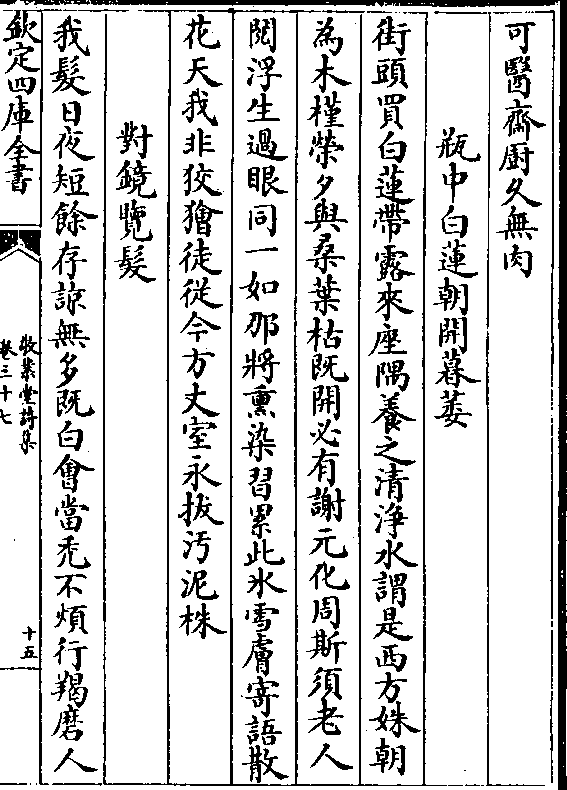 可醫齋厨久無肉
瓶中白蓮朝開暮萎
街頭買白蓮帶露來座隅養之清浄水謂是西方姝朝
為木槿榮夕與桑葉枯既開必有謝元化周斯須老人
閲浮生過眼同一如那將熏染習累此氷雪膚寄語散
花天我非狡獪徒從今方丈室永拔汚泥株
對鏡覽髮
我髮日夜短餘存諒無多既白會當秃不煩行羯磨人
欽定四庫全書
敬業堂詩集
卷三十七
十五